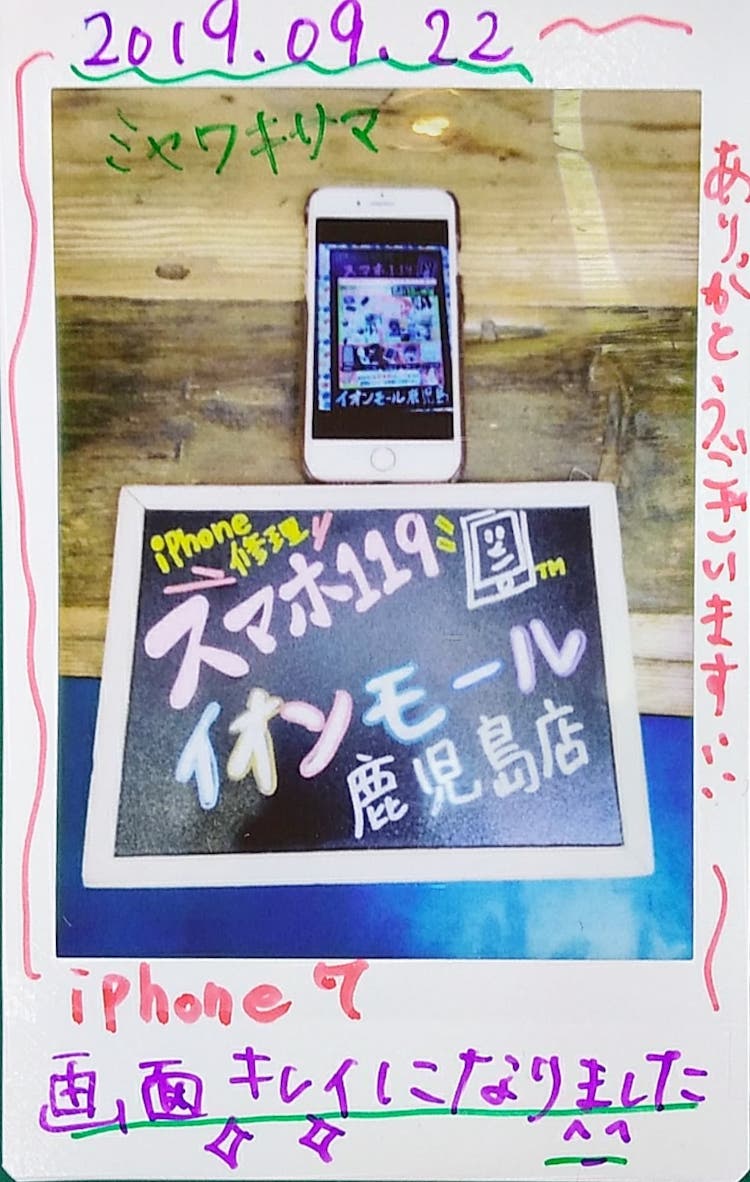 2019.09.22
ミヤワキサマ
ありがとうございます!!
スマホ119
イオンモール鹿児島
iPhone
修理
スマホ119
TM
イオンモール
鹿児島店
iphone 7
画面キレイになりました
^^